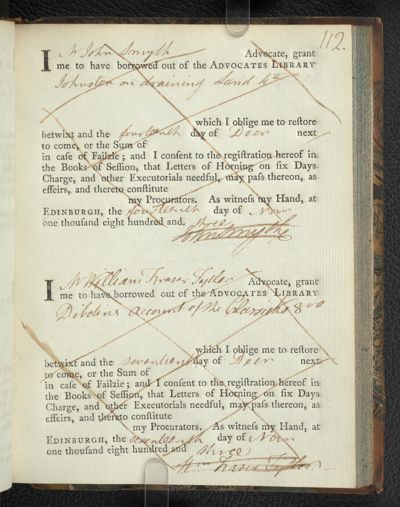 112.
I Mr John Smyth Advocate, grant
me to have borrowed out of the ADVOCATES LIBRARY
Johnston on draining Land 4to
which I oblige me to restore
betwixt and the fourteenth day of Decr next
to come, or the Sum of
in case of Failzie; and I consent to the registration hereof in
the Books of Session, that Letters of Horning on six Days
Charge, and other Executorials needful, may pass thereon, as
effeirs, and thereto constitute
my Procurators. As witness my Hand, at
EDINBURGH, the fourteenth day of Novr
one thousand eight hundred and three
John Smythe
I Mr William Fraser Tytler Advocate, grant
me to have borrowed out of the ADVOCATES LIBRARY
Dibdins account of the Classicks 8vo
which I oblige me to restore
betwixt and the seventeenth day of Decr next
to come, or the Sum of
in case of Failzie; and I consent to the registration hereof in
the Books of Session, that Letters of Horning on six Days
Charge, and other Executorials needful, may pass thereon, as
effeirs, and thereto constitute
my Procurators. As witness my Hand, at
EDINBURGH, the seventeenth day of Novr
one thousand eight hundred and three
Wm Fraser Tytler